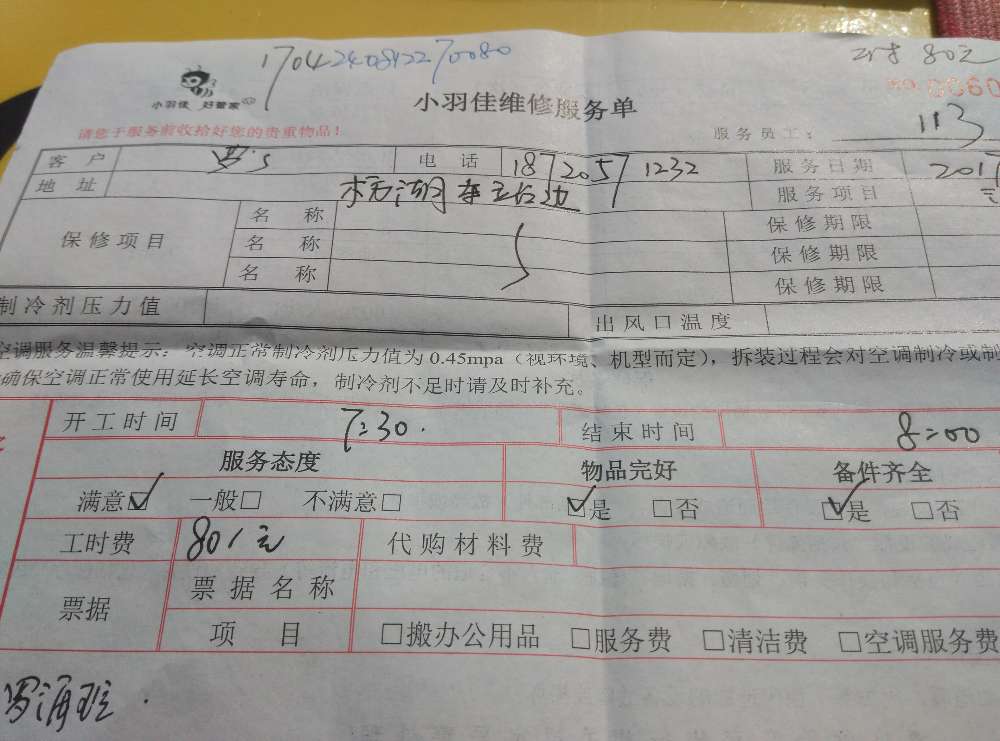 1704240842270080
80元
小羽佳 好管家
小羽佳维修服务单
NO.0060
请您于服务前收拾好您的贵重物品！
服务员工： 113
客户 电话 18720571232 服务日期 2017
地址 服务项目
保修项目 名称 保修期限
名称 保修期限
名称 保修期限
制冷剂压力值 出风口温度
空调服务温馨提示：空调正常制冷剂压力值为0.45mpa（视环境、机型而定），拆装过程会对空调制冷或制
确保空调正常使用延长空调寿命，制冷剂不足时请及时补充。
开工时间 7:30. 结束时间 8:00
服务态度 物品完好 备件齐全
满意☑ 一般□ 不满意□ ☑是 □否 ☑是 □否
工时费 80/元 代购材料费
票据 票据名称
项目 □搬办公用品 □服务费 □清洁费 □空调服务费